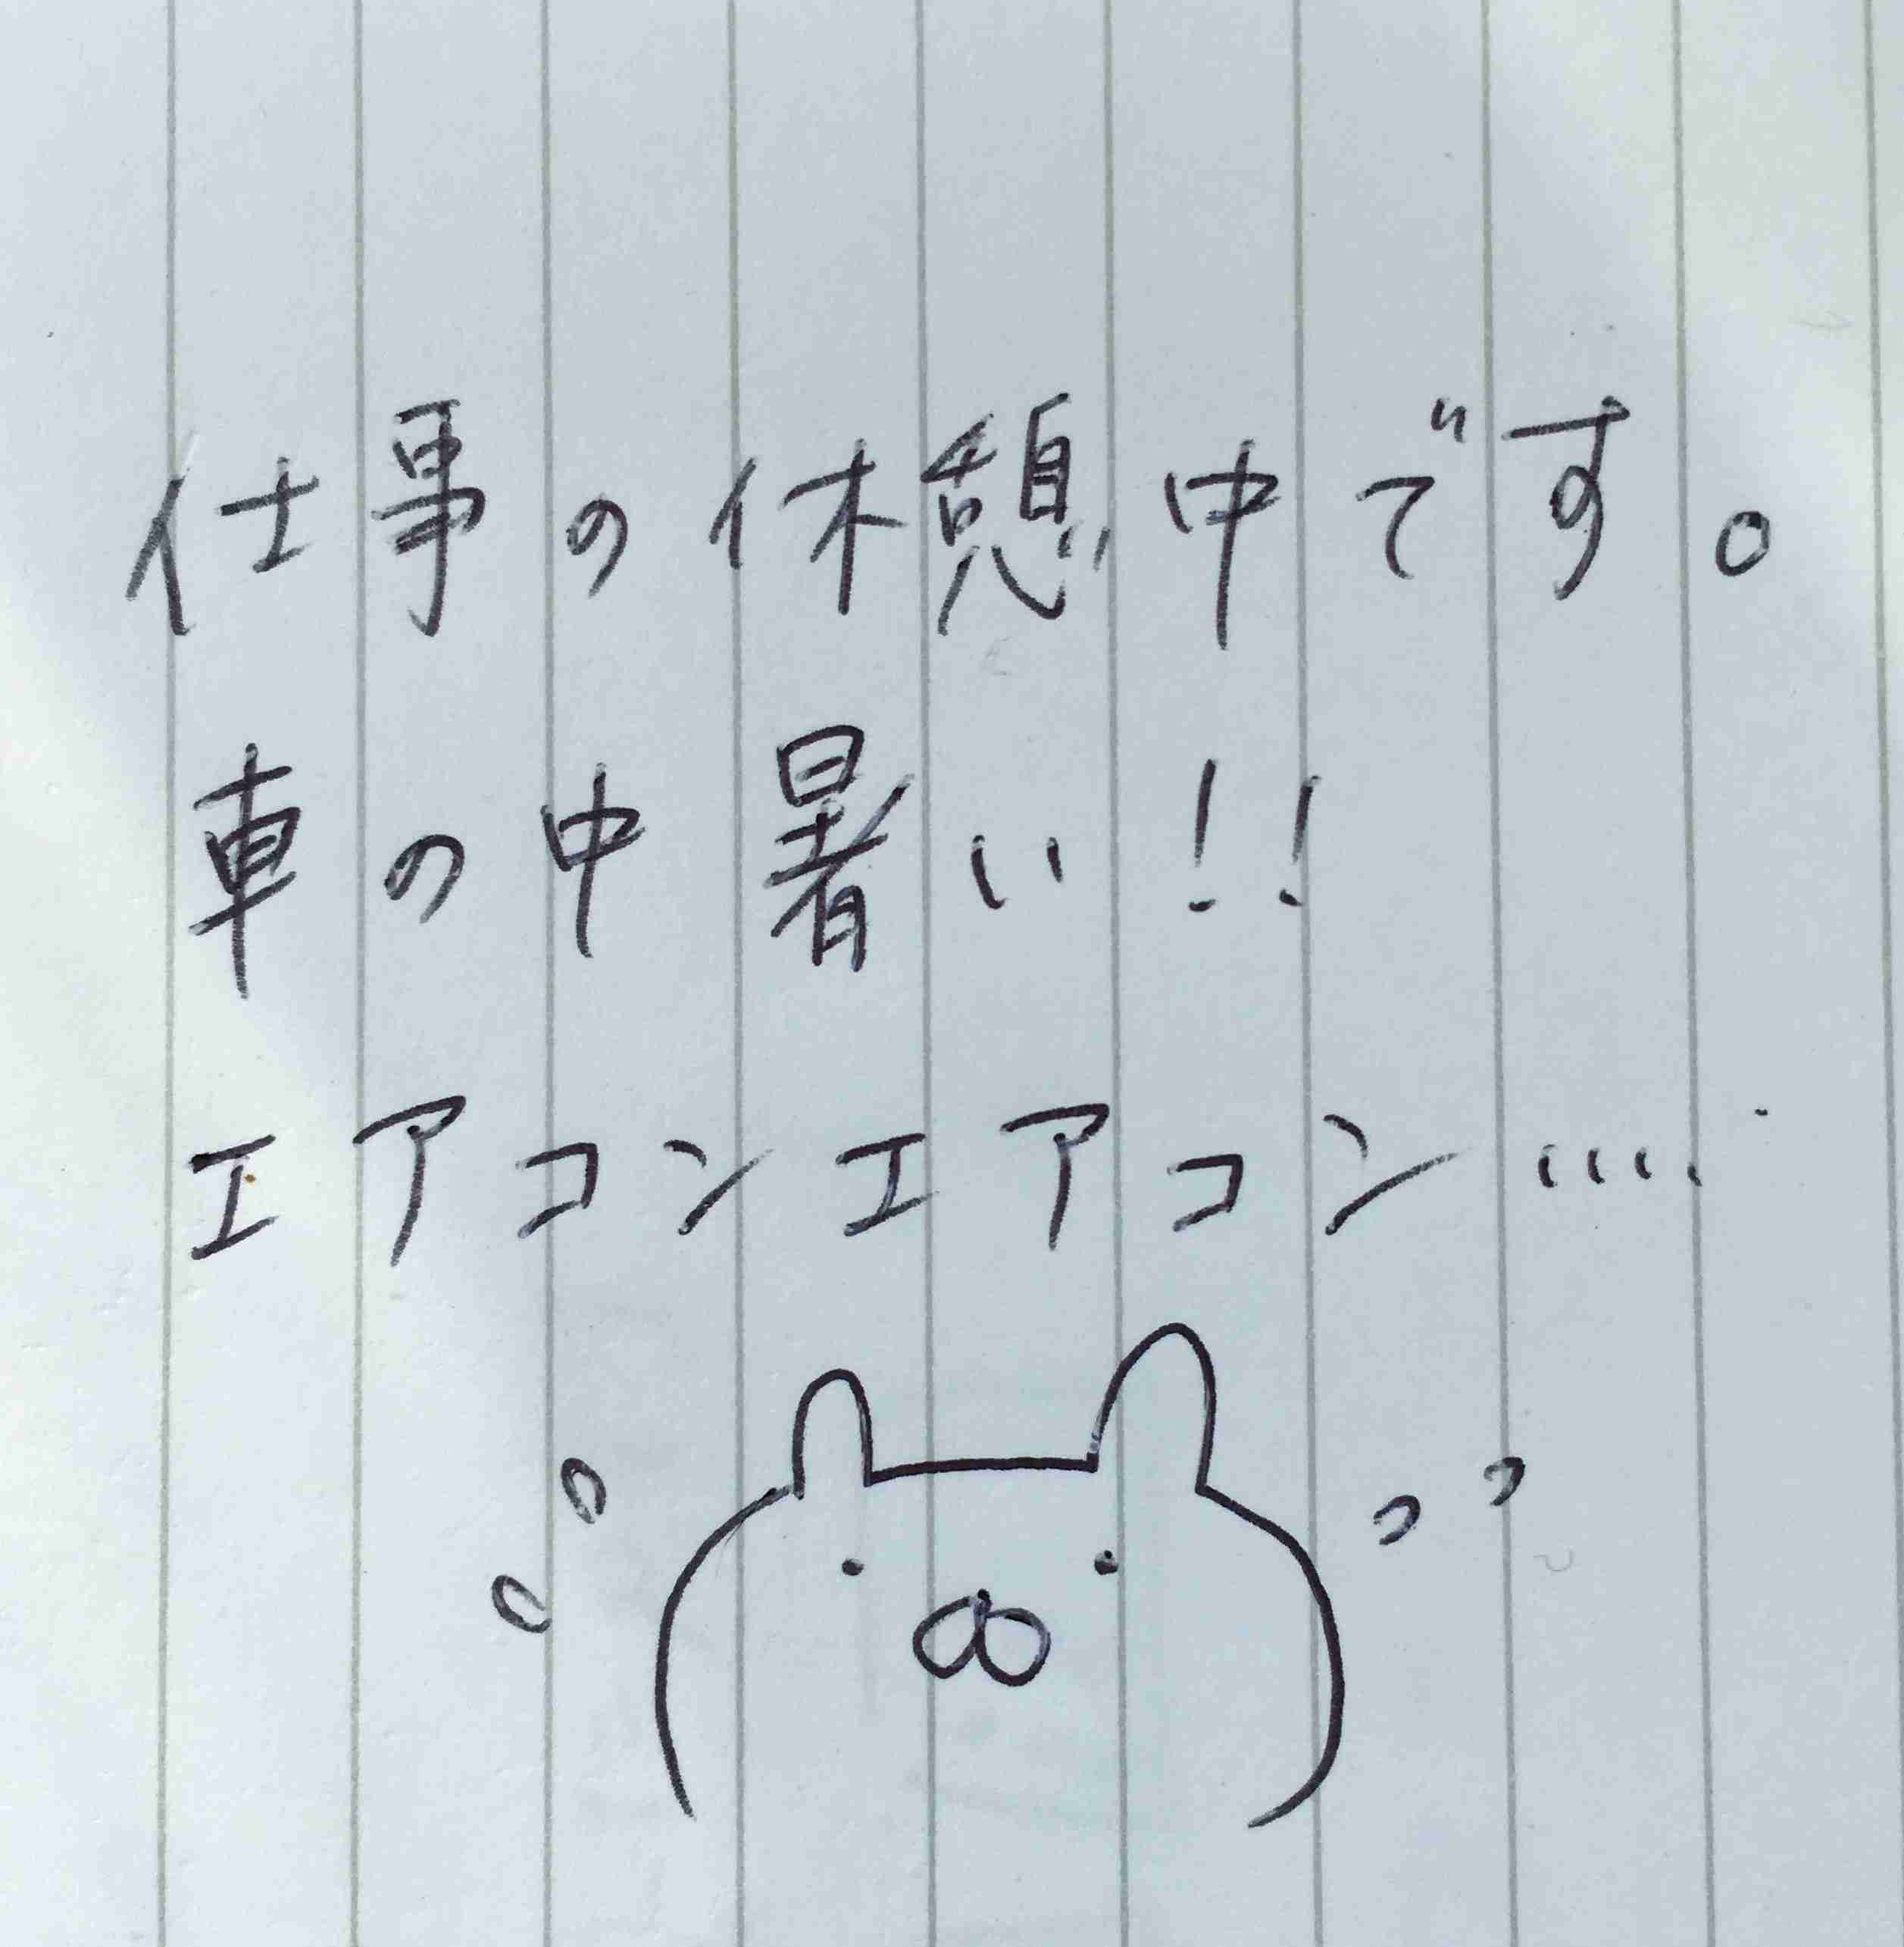 仕事の休憩中です。
車の中暑い!!
エアコンエアコン‥‥